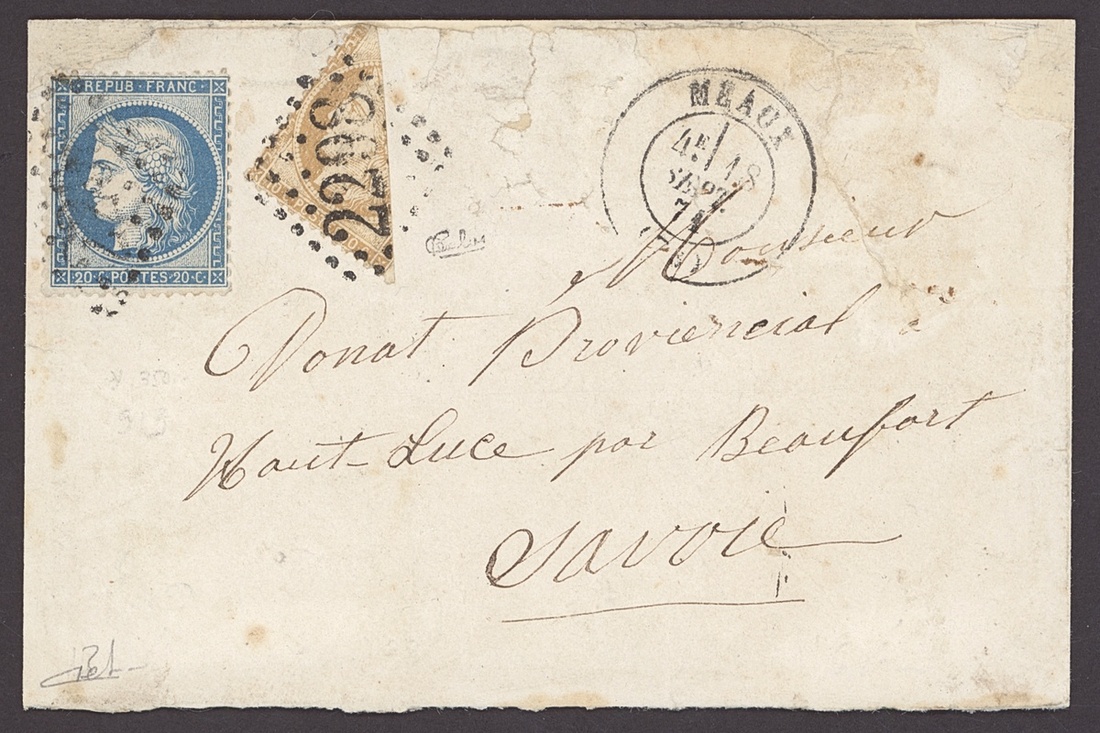 REPUB · FRANC
20 · C POSTES 20 · C
2298
MEAUX
4E 18
SEPT.
71
Monsieur
Donat Proviencial à
Haut-Luce par Beaufort
Savoie